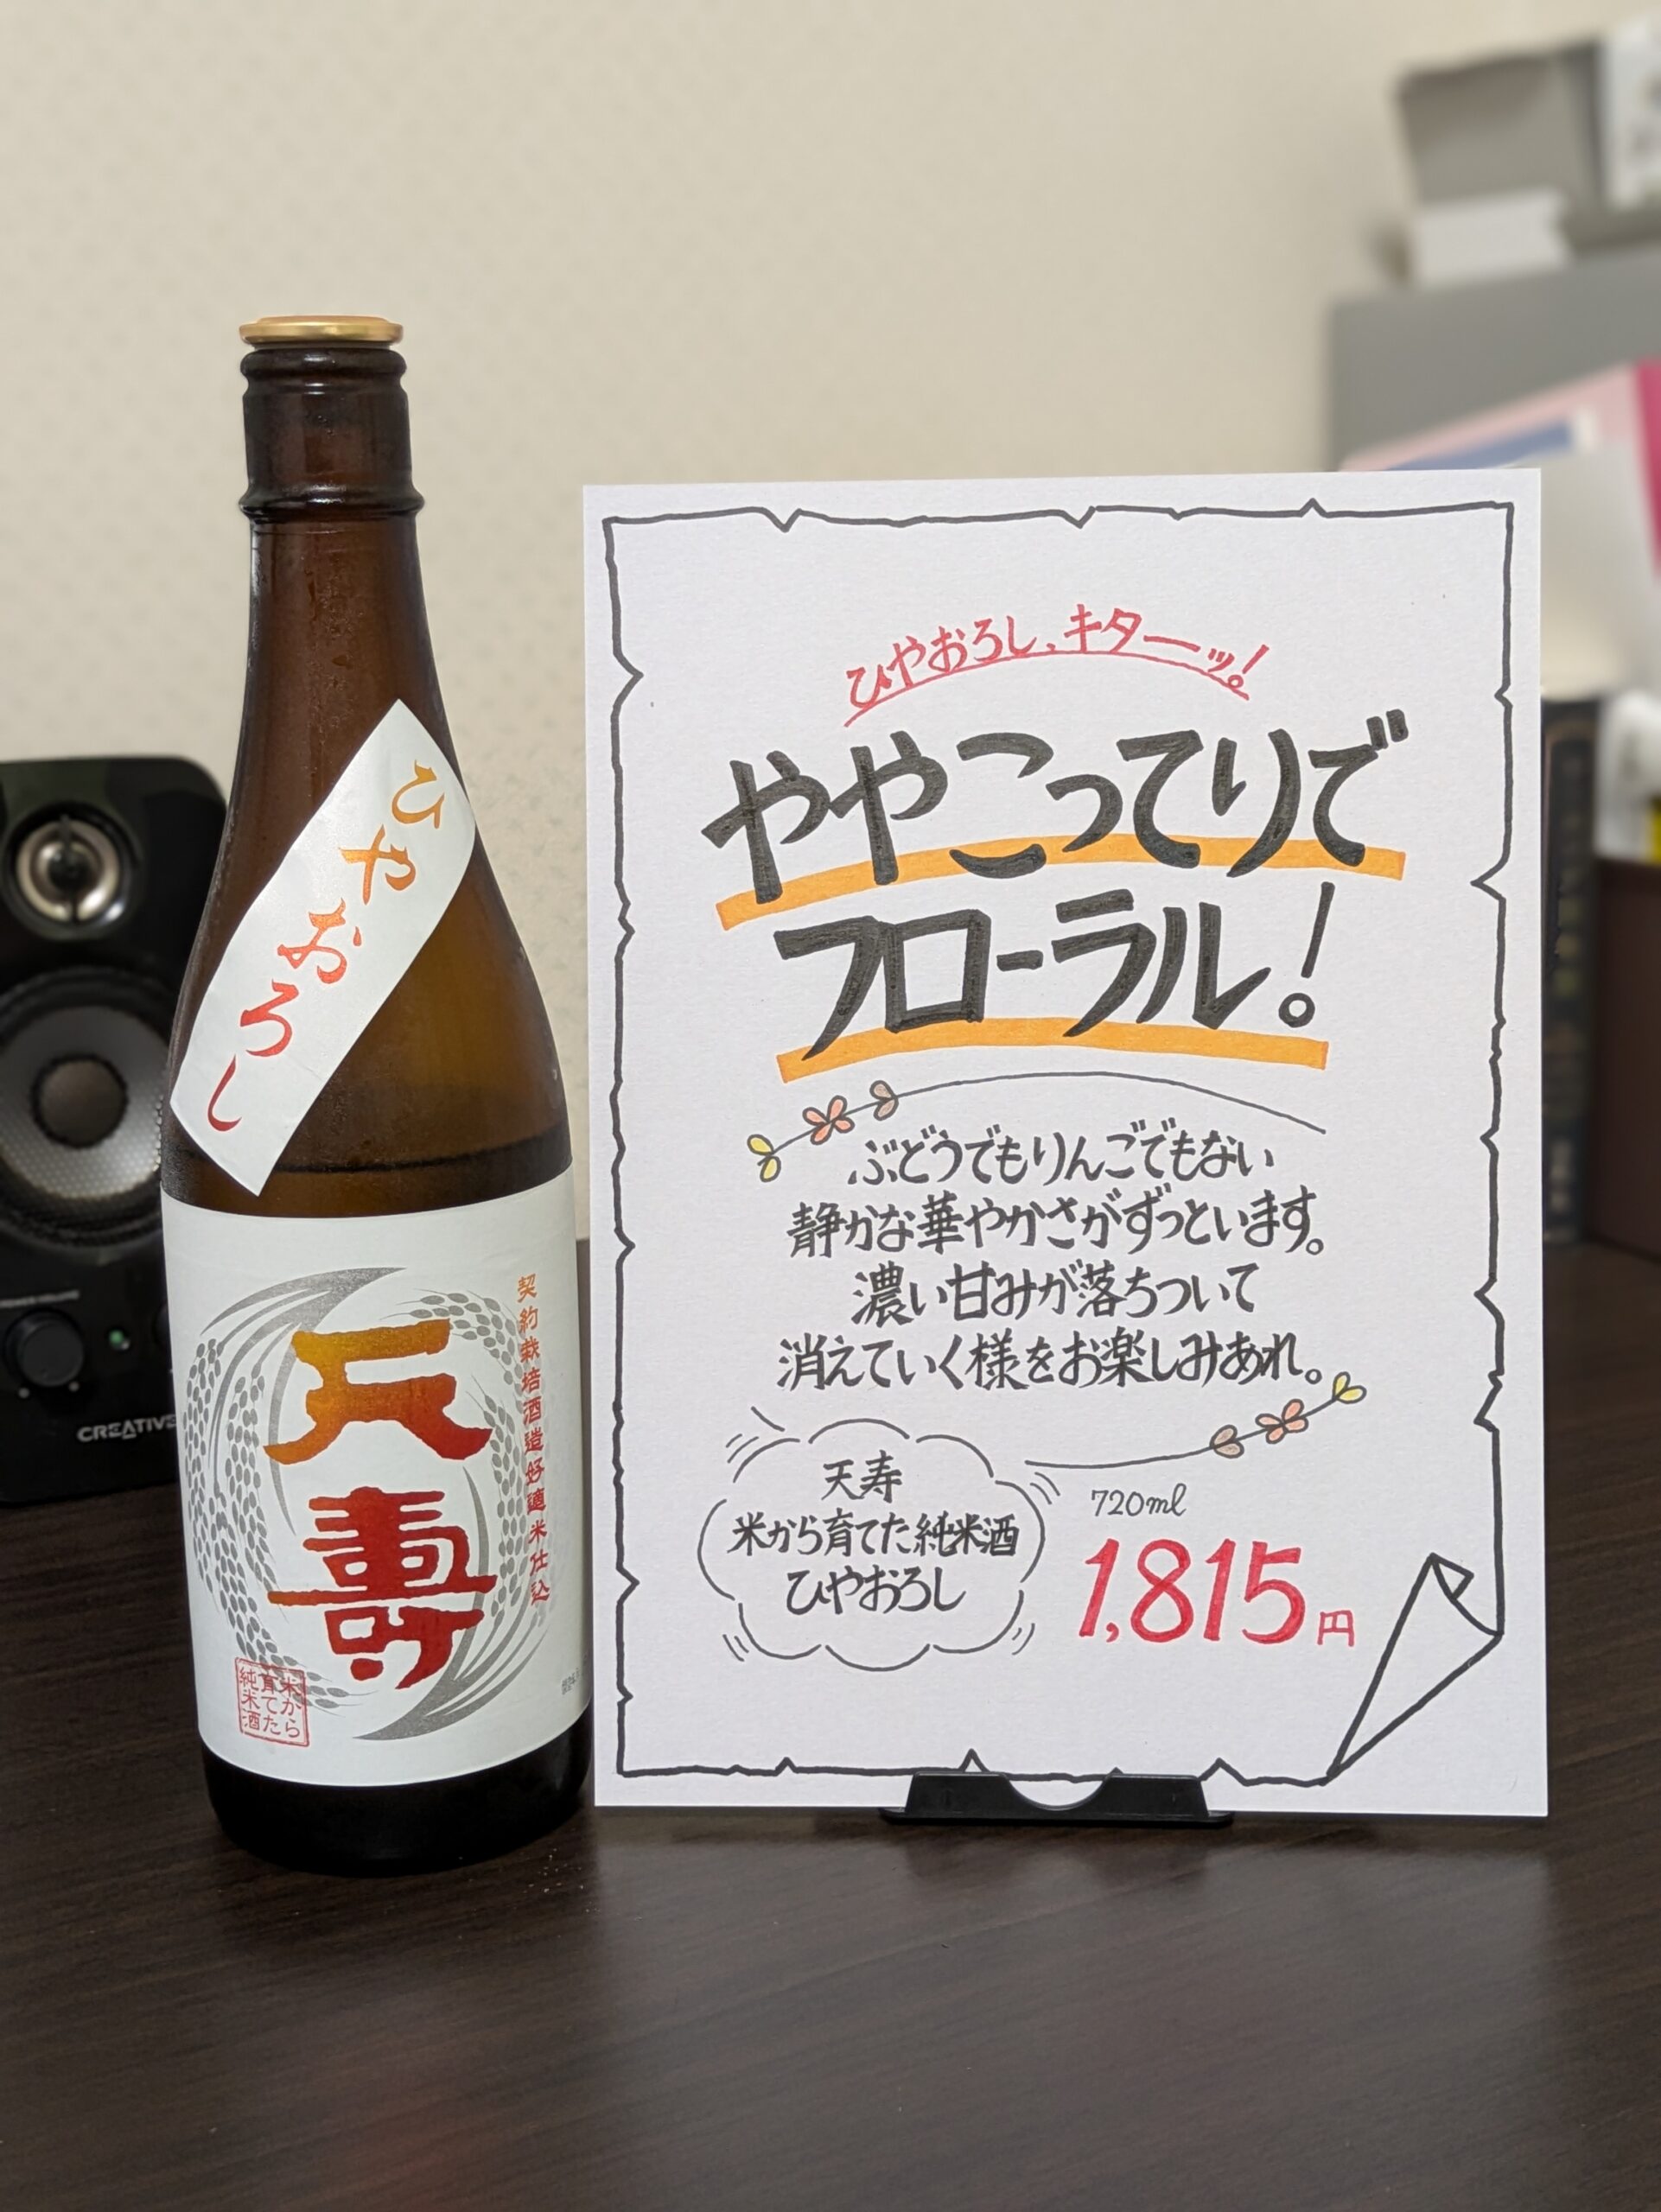 ひやおろし
契約栽培酒造好適米仕込
天壽
米から
育てた
純米酒
CREATIVE
ひやおろし、キターッ!
ややこってりで
フローラル!
ぶどうでもりんごでもない
静かな華やかさがずっといます。
濃い甘みが落ちついて
消えていく様をお楽しみあれ。
天寿
米から育てた純米酒
ひやおろし
720ml
1,815円